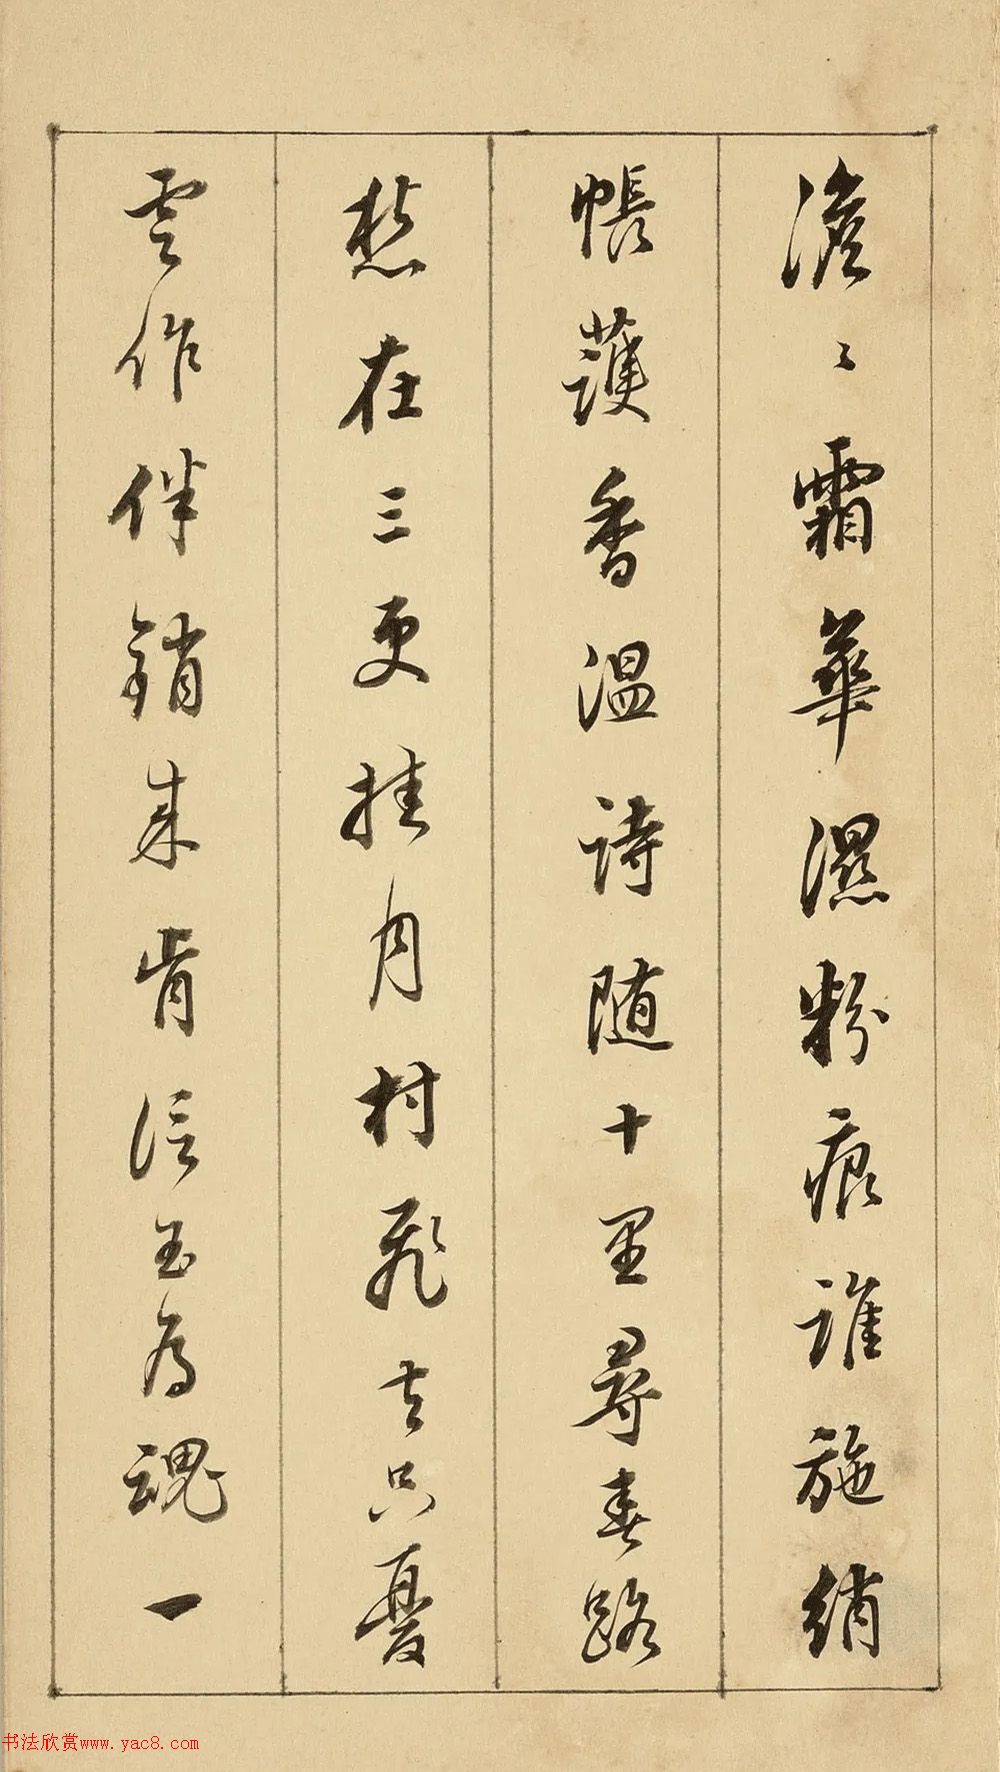 澹〻霜華濕粉痕誰施綃
帳護香温詩随十里尋春路
愁在三更挂月村飛去只憂
雲作伴銷来肯信玉為魂一
书法欣赏www.yac8.com